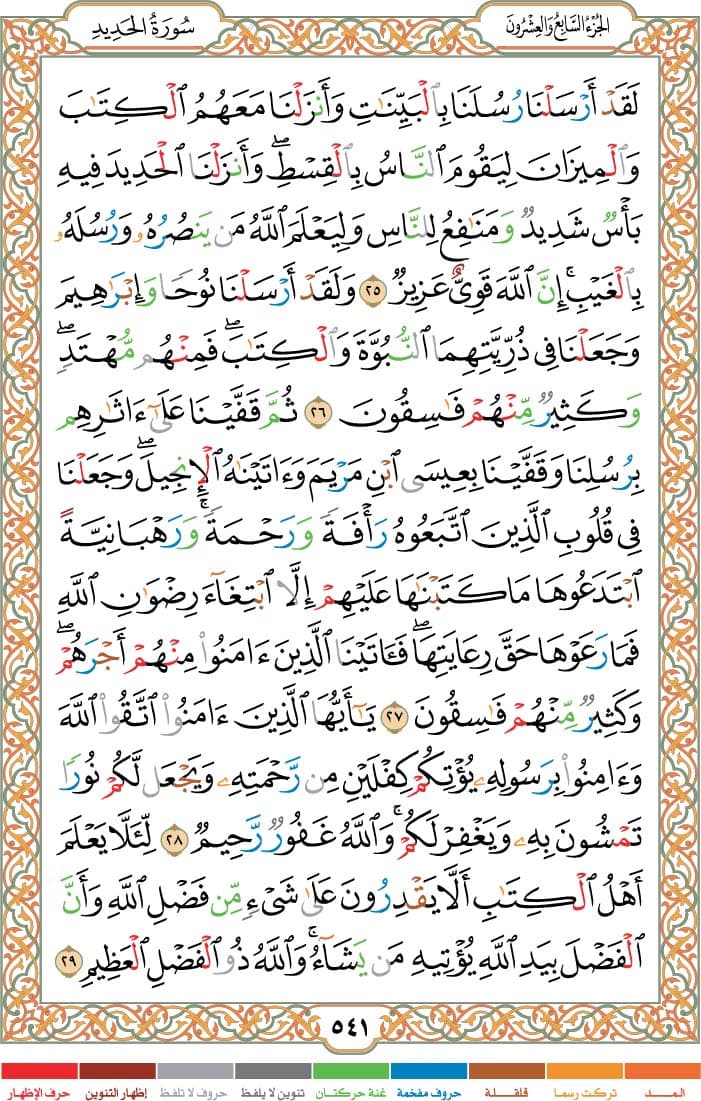 الجُزْءُ السَّابِعُ وَالعِشْرُونَ
سُورَةُ الحَدِيدِ
لَقَدْ أَرْسَلْنَا رُسُلَنَا بِٱلْبَيِّنَٰتِ وَأَنزَلْنَا مَعَهُمُ ٱلْكِتَٰبَ
وَٱلْمِيزَانَ لِيَقُومَ ٱلنَّاسُ بِٱلْقِسْطِۖ وَأَنزَلْنَا ٱلْحَدِيدَ فِيهِ
بَأْسٌ شَدِيدٌ وَمَنَٰفِعُ لِلنَّاسِ وَلِيَعْلَمَ ٱللَّهُ مَن يَنصُرُهُۥ وَرُسُلَهُۥ
بِٱلْغَيْبِۚ إِنَّ ٱللَّهَ قَوِىٌّ عَزِيزٌ ٢٥ وَلَقَدْ أَرْسَلْنَا نُوحًا وَإِبْرَٰهِيمَ
وَجَعَلْنَا فِى ذُرِّيَّتِهِمَا ٱلنُّبُوَّةَ وَٱلْكِتَٰبَۖ فَمِنْهُم مُّهْتَدٍۖ
وَكَثِيرٌ مِّنْهُمْ فَٰسِقُونَ ٢٦ ثُمَّ قَفَّيْنَا عَلَىٰٓ ءَاثَٰرِهِم
بِرُسُلِنَا وَقَفَّيْنَا بِعِيسَى ٱبْنِ مَرْيَمَ وَءَاتَيْنَٰهُ ٱلْإِنجِيلَۖ وَجَعَلْنَا
فِى قُلُوبِ ٱلَّذِينَ ٱتَّبَعُوهُ رَأْفَةً وَرَحْمَةًۚ وَرَهْبَانِيَّةً
ٱبْتَدَعُوهَا مَا كَتَبْنَٰهَا عَلَيْهِمْ إِلَّا ٱبْتِغَآءَ رِضْوَٰنِ ٱللَّهِ
فَمَا رَعَوْهَا حَقَّ رِعَايَتِهَاۖ فَـَٔاتَيْنَا ٱلَّذِينَ ءَامَنُوا۟ مِنْهُمْ أَجْرَهُمْۖ
وَكَثِيرٌ مِّنْهُمْ فَٰسِقُونَ ٢٧ يَٰٓأَيُّهَا ٱلَّذِينَ ءَامَنُوا۟ ٱتَّقُوا۟ ٱللَّهَ
وَءَامِنُوا۟ بِرَسُولِهِۦ يُؤْتِكُمْ كِفْلَيْنِ مِن رَّحْمَتِهِۦ وَيَجْعَل لَّكُمْ نُورًا
تَمْشُونَ بِهِۦ وَيَغْفِرْ لَكُمْۚ وَٱللَّهُ غَفُورٌ رَّحِيمٌ ٢٨ لِّئَلَّا يَعْلَمَ
أَهْلُ ٱلْكِتَٰبِ أَلَّا يَقْدِرُونَ عَلَىٰ شَىْءٍ مِّن فَضْلِ ٱللَّهِ وَأَنَّ
ٱلْفَضْلَ بِيَدِ ٱللَّهِ يُؤْتِيهِ مَن يَشَآءُۚ وَٱللَّهُ ذُو ٱلْفَضْلِ ٱلْعَظِيمِ ٢٩
٥٤١
المــد تركت رسما قلقلة حروف مفخمة غنة حركتان تنوين لا يلفظ حروف لا تلفظ إظهار التنوين حرف الإظهار